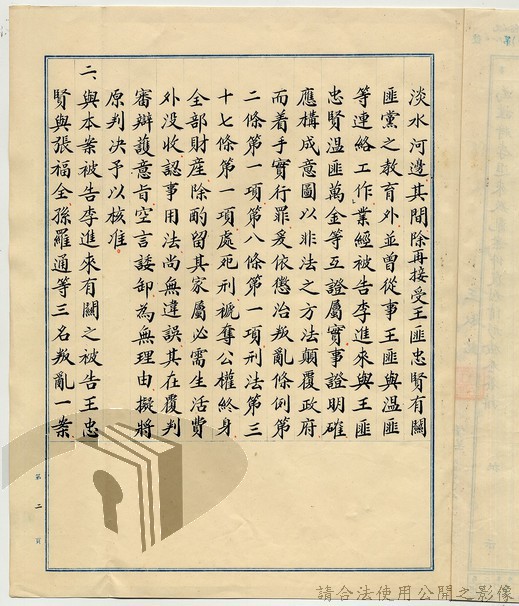 淡水河邊其間除再接受王匪忠賢有關
匪黨之教育外並曾從事王匪與溫匪
等連絡工作業經被告李進來與王匪
忠賢溫匪萬金等互證屬實事證明確
應構成意圖以非法之方法顛覆政府
而着手實行罪爰依懲治叛亂條例第
二條第一項第八條第一項刑法第三
十七條第一項處死刑褫奪公權終身
全部財產除酌留其家屬必需生活費
外沒收認事用法尚無違誤其在覆判
審辯護意旨空言諉卸為無理由擬將
原判決予以核准
二、與本案被告李進來有關之被告王忠
賢與張福全孫羅通等三名叛亂一案
第二頁
請合法使用公開之影像